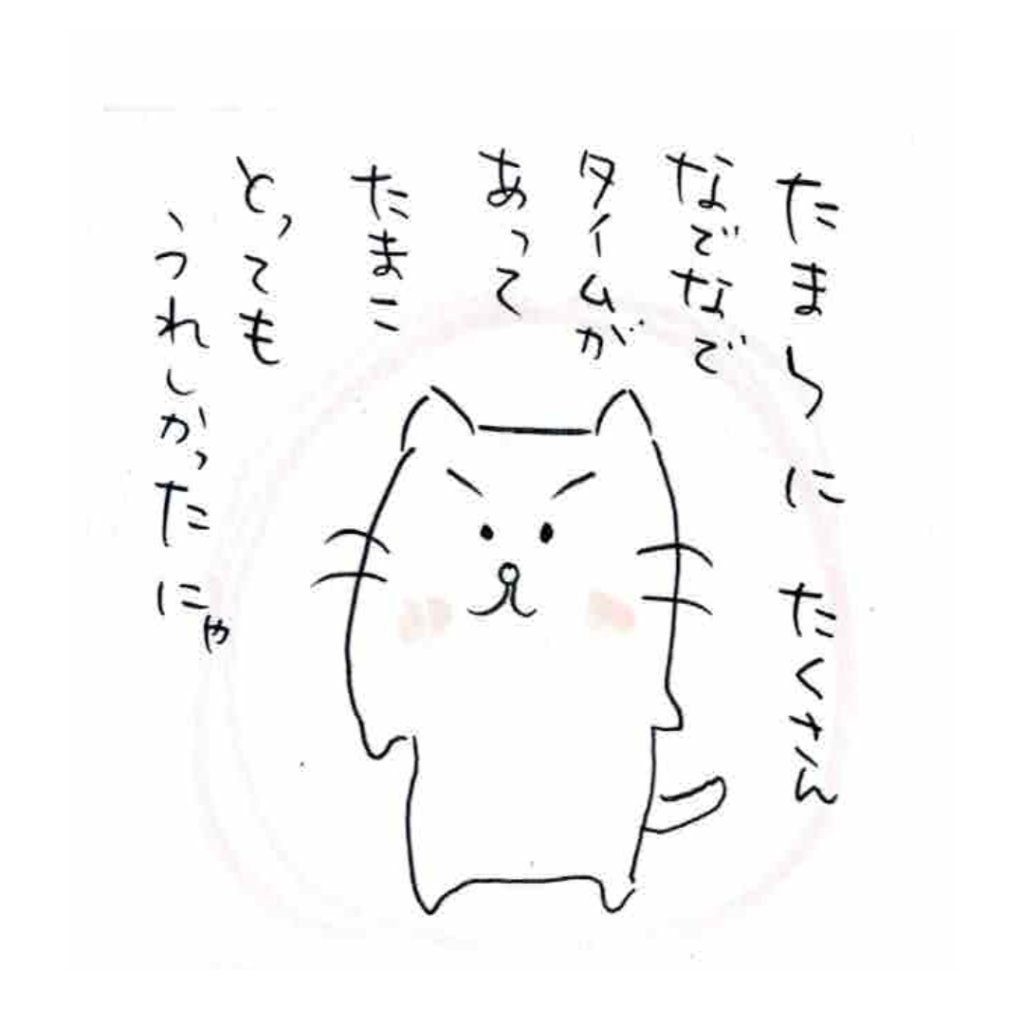 たまらに たくさん
なでなで
タイムが
あって
たまこ
とっても
うれしかったにゃ